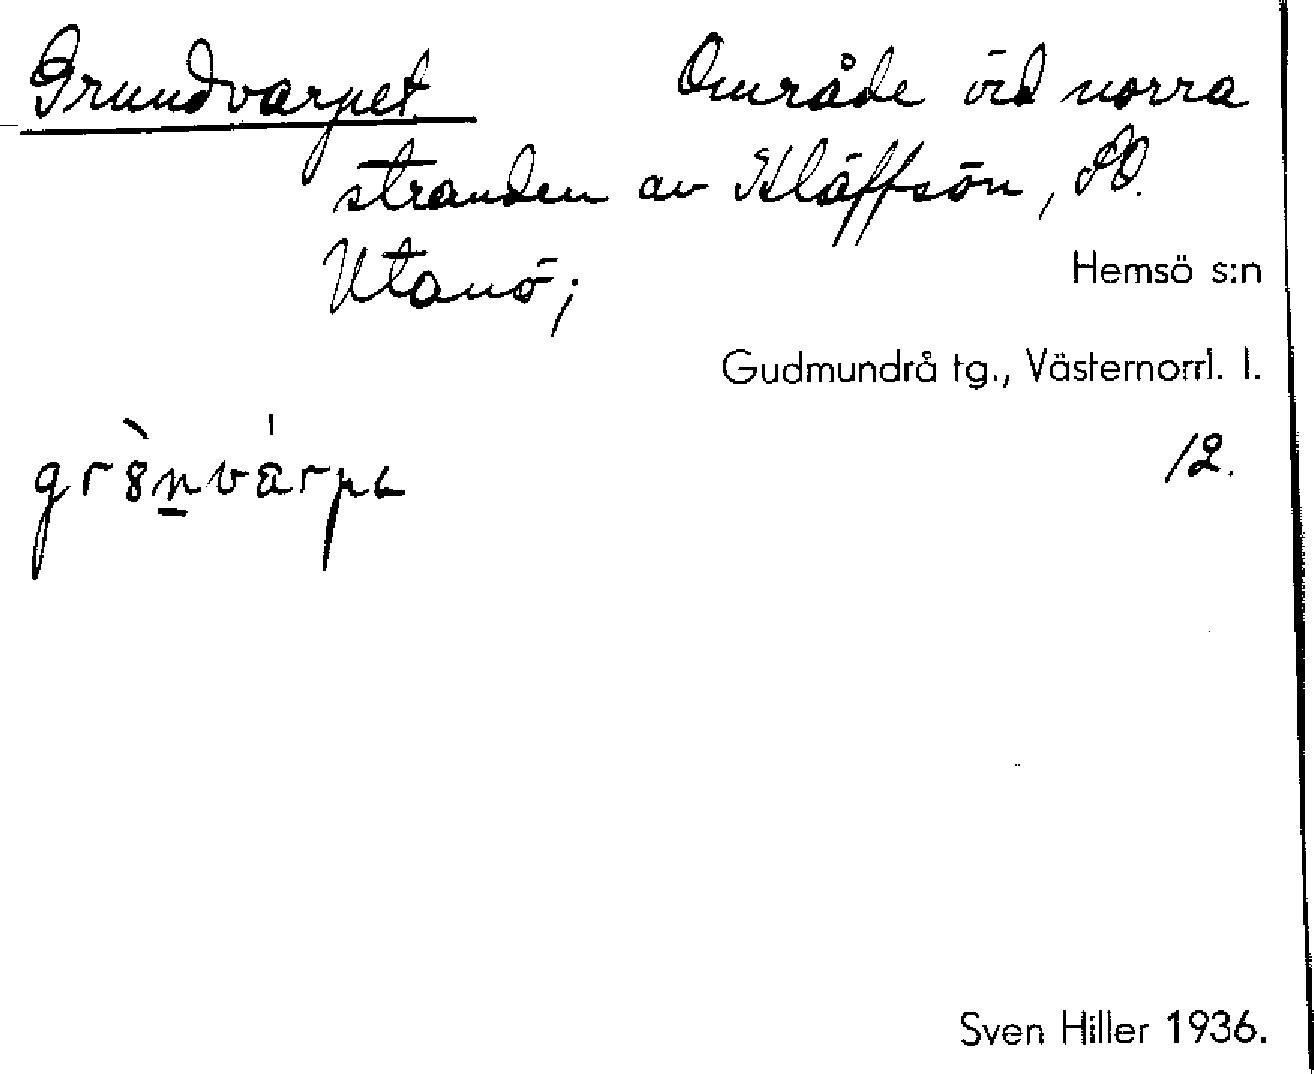 Grundvarpet Område vid norra
stranden av Kläffsön, SO.
Utanö;
Hemsö s:n
Gudmundrå tg., Västernorrl. l.
12.
Sven Hiller 1936.